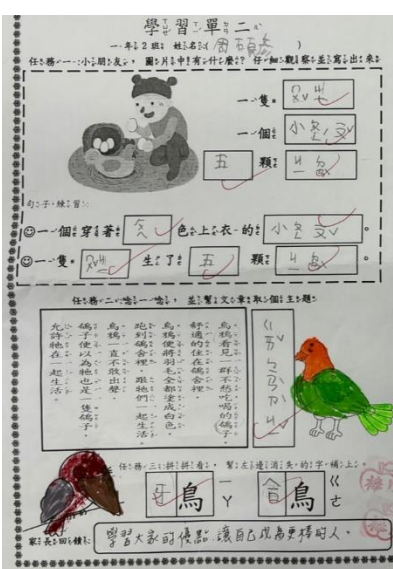 學習單二
一年2班 姓名:( )
任務一:小朋友, 圖片中有什麼? 仔細觀察並寫出來
一隻
一個 小
五 顆
句子練習:
☺一個穿著 色上衣的 小 。
☺一隻 生了 五 顆 。
任務二:唸一唸, 並幫文章取個主題
烏鴉看見一群不愁吃喝的鴿子,
舒適的住在鴿舍裡,
烏鴉便將羽毛全都塗成白色,
跑到鴿舍裡,跟牠們一起生活。
烏鴉一直不敢出聲,
鴿子便以為牠也是一隻鴿子,
允許牠在一起生活。
任務三:拼拼看, 幫左邊消失的字補上。
牙 鳥 ㄧㄚ
合 鳥 ㄍㄜ
家長回饋: 學習大家的優點,讓自己成為更棒的人。